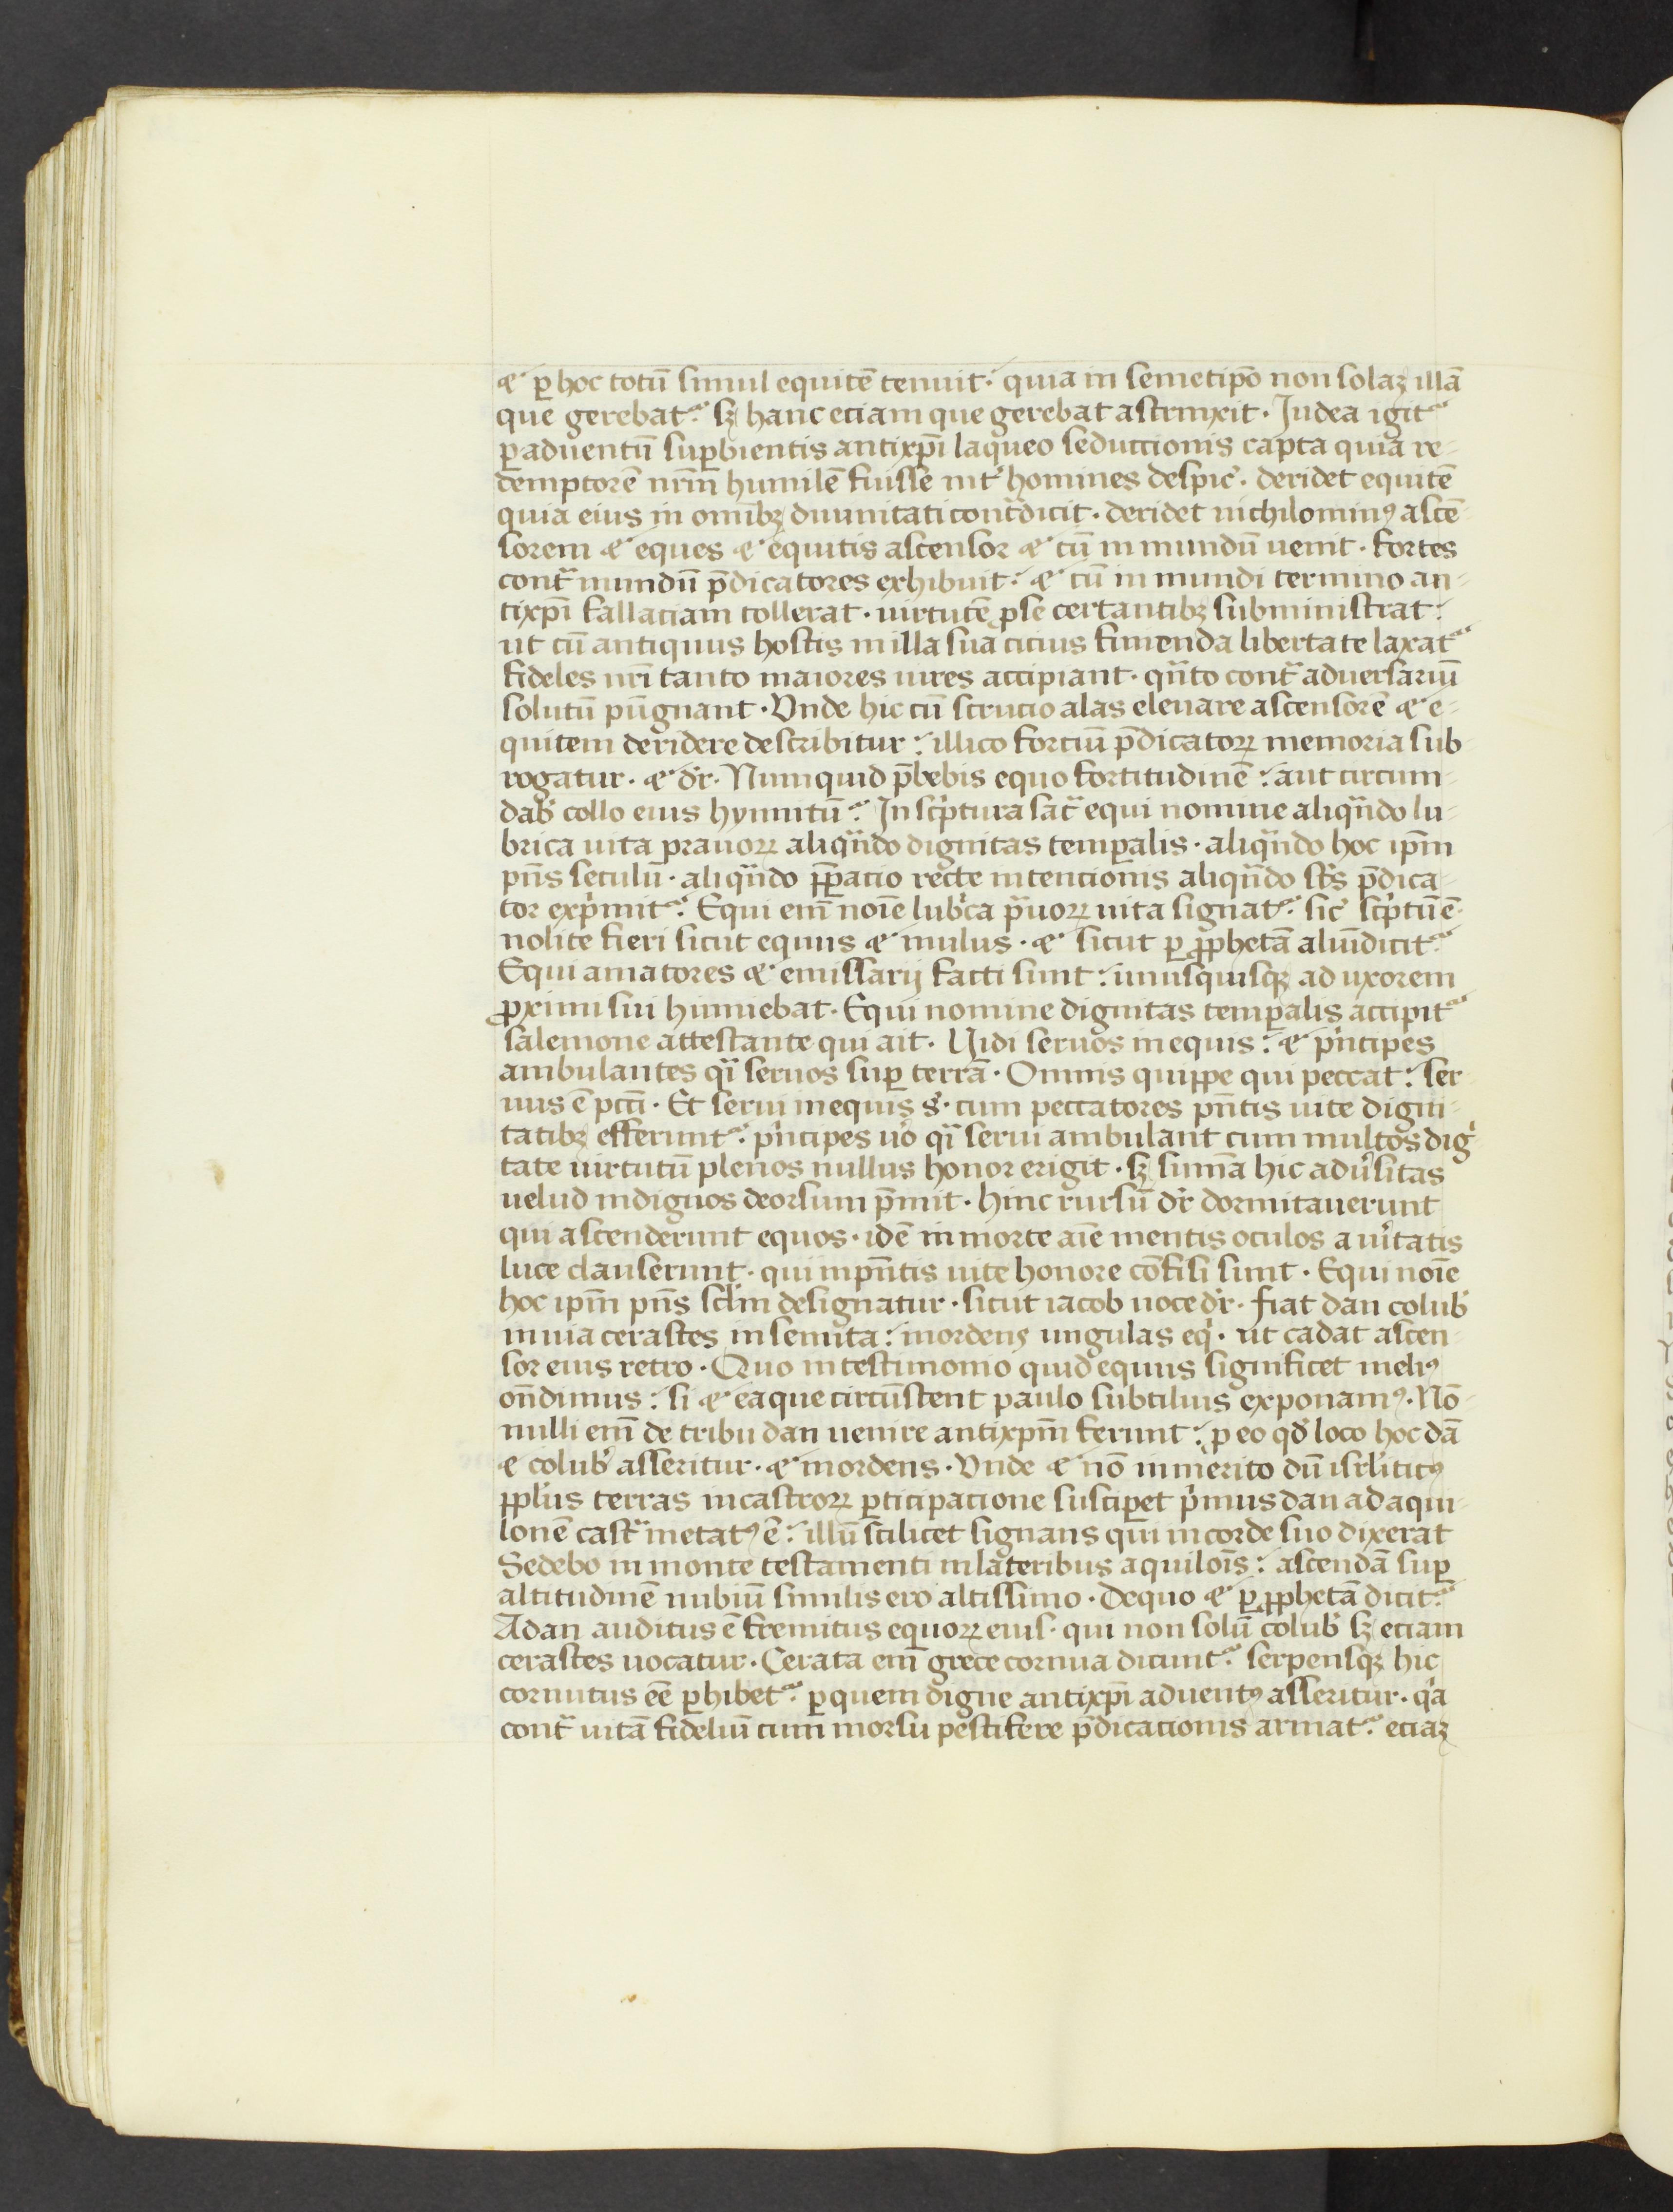 et ꝑ hoc totū simul equitē tenuit· quia in semetipō non solaꝫ illā
que gerebatᷣ sꝫ hanc eciam que gerebat astrinxit· Judea igitᷣ
ꝑ aduentū suꝑbientis antixp̄i laqueo seduccionis capta quia re-
demptorē nr̄m humilē fuisse int̾ homines despic̾· deridet equitē
quia eius in omībꝫ diuinitati cont̾dicit· deridet nichilominꝰ ascē
sorem et eques et equitis ascensor et cū in mundū uenit· fortes
cont̾ mundū p̄dicatores exhibuit: et cū in mundi termino an-
tixp̄i fallaciam tollerat· uirtutē ꝓ se certantibꝫ subministrat:
ut cū antiquus hostis in illa sua cicius finienda libertate laxatᷣ
fideles nr̄i tanto maiores uires accipiant· qn̄to cont̾ aduersariū
solutū pūgnant· Vnde hic cū strucio alas eleuare ascensorē et e-
quitem deridere describitur: illico fortiū p̄dicatoꝝ memoria sub
rogatur· et dr̄· Numquid p̄bebis equo fortitudinē: aut circum-
dab̾ collo eius hynnitū: In scͥptura sac̾ equi nomine aliqn̄do lu-
brica uita prauoꝝ aliqn̄do dignitas temꝑalis· aliqn̄do hoc ip̄m
pn̄s seculū· aliqn̄do p̄ꝑacio recte intencionis aliqn̄do sc̄s p̄dica-
tor expͥmitᷣ Equi em̄ noīe lubͥca pͣuoꝝ uita signatᷣ sic̾ scͥptū ē·
nolite fieri sicut equus et mulus· et sicut ꝑ ꝓphetā aliūdicitᷣ
Equi amatores et emissarij facti sunt: unusquisqꝫ ad uxorem
ꝓximi sui hinniebat· Equi nomine dignitas temꝑalis accipitᷣ
salemone attestante qui ait· Uidi seruos in equis: et pͥncipes
ambulantes qͣi seruos suꝑ terrā· Omnis quippe qui peccat: ser
uus ē pcc̄i· Et serui in equis s̄· cum peccatores pn̄tis uite digni-
tatibꝫ efferuntᷣ pͥncipes uͦo qͣi serui ambulant cum multos dig̾
tate uirtutū plenos nullus honor erigit· sꝫ sum̄a hic adu̾sitas
uelud indignos deorsum p̄mit· hinc rursū dr̄ dormitauerunt
qui ascenderunt equos· idē in morte aīe mentis oculos a u̾itatis
luce clauserunt· qui in pn̄tis uite honore cōfisi sunt· Equi noīe
hoc ip̄m pn̄s scl̄m designatur· sicut iacob uoce dr̄· fiat dan colub̾
in uia cerastes in semita: mordens ungulas eqͥ· ut cadat ascen-
sor eius retro· Quo in testimonio quid equus significet meliꝰ
on̄dimus: si et ea que circūstent paulo subtilius exponamꝰ· Nō-
nulli em̄ de tribu dan uenire antixp̄m ferunt: ꝓ eo qd̾ loco hoc dā
et colub̾ asseritur· et mordens· Vnde et nō inmerito dū isrl̾iticꝰ
ppl̾us terras in castroꝝ ꝑticipacione susciꝑet pͥmus dan ad aqui-
lonē cast̾ metatꝰ ē: illū scilicet signans qui in corde suo dixerat
Sedebo in monte testamenti in lateribus aquiloīs: ascendā suꝑ
altitudinē nubiū similis ero altissimo· De quo et ꝑ ꝓphetā dicitᷣ
A dan auditus ē fremitus equoꝝ eius· qui non solū colub̾ sꝫ eciam
cerastes uocatur· Cerata em̄ grece cornua dicuntᷣ serpensqꝫ hic
cornutus eē ꝑhibetᷣ ꝑ quem digne antixp̄i aduentꝰ asseritur· qͥa
cont̾ uitā fideliū cum morsu pestifere p̄dicacionis armatᷣ eciaꝫ